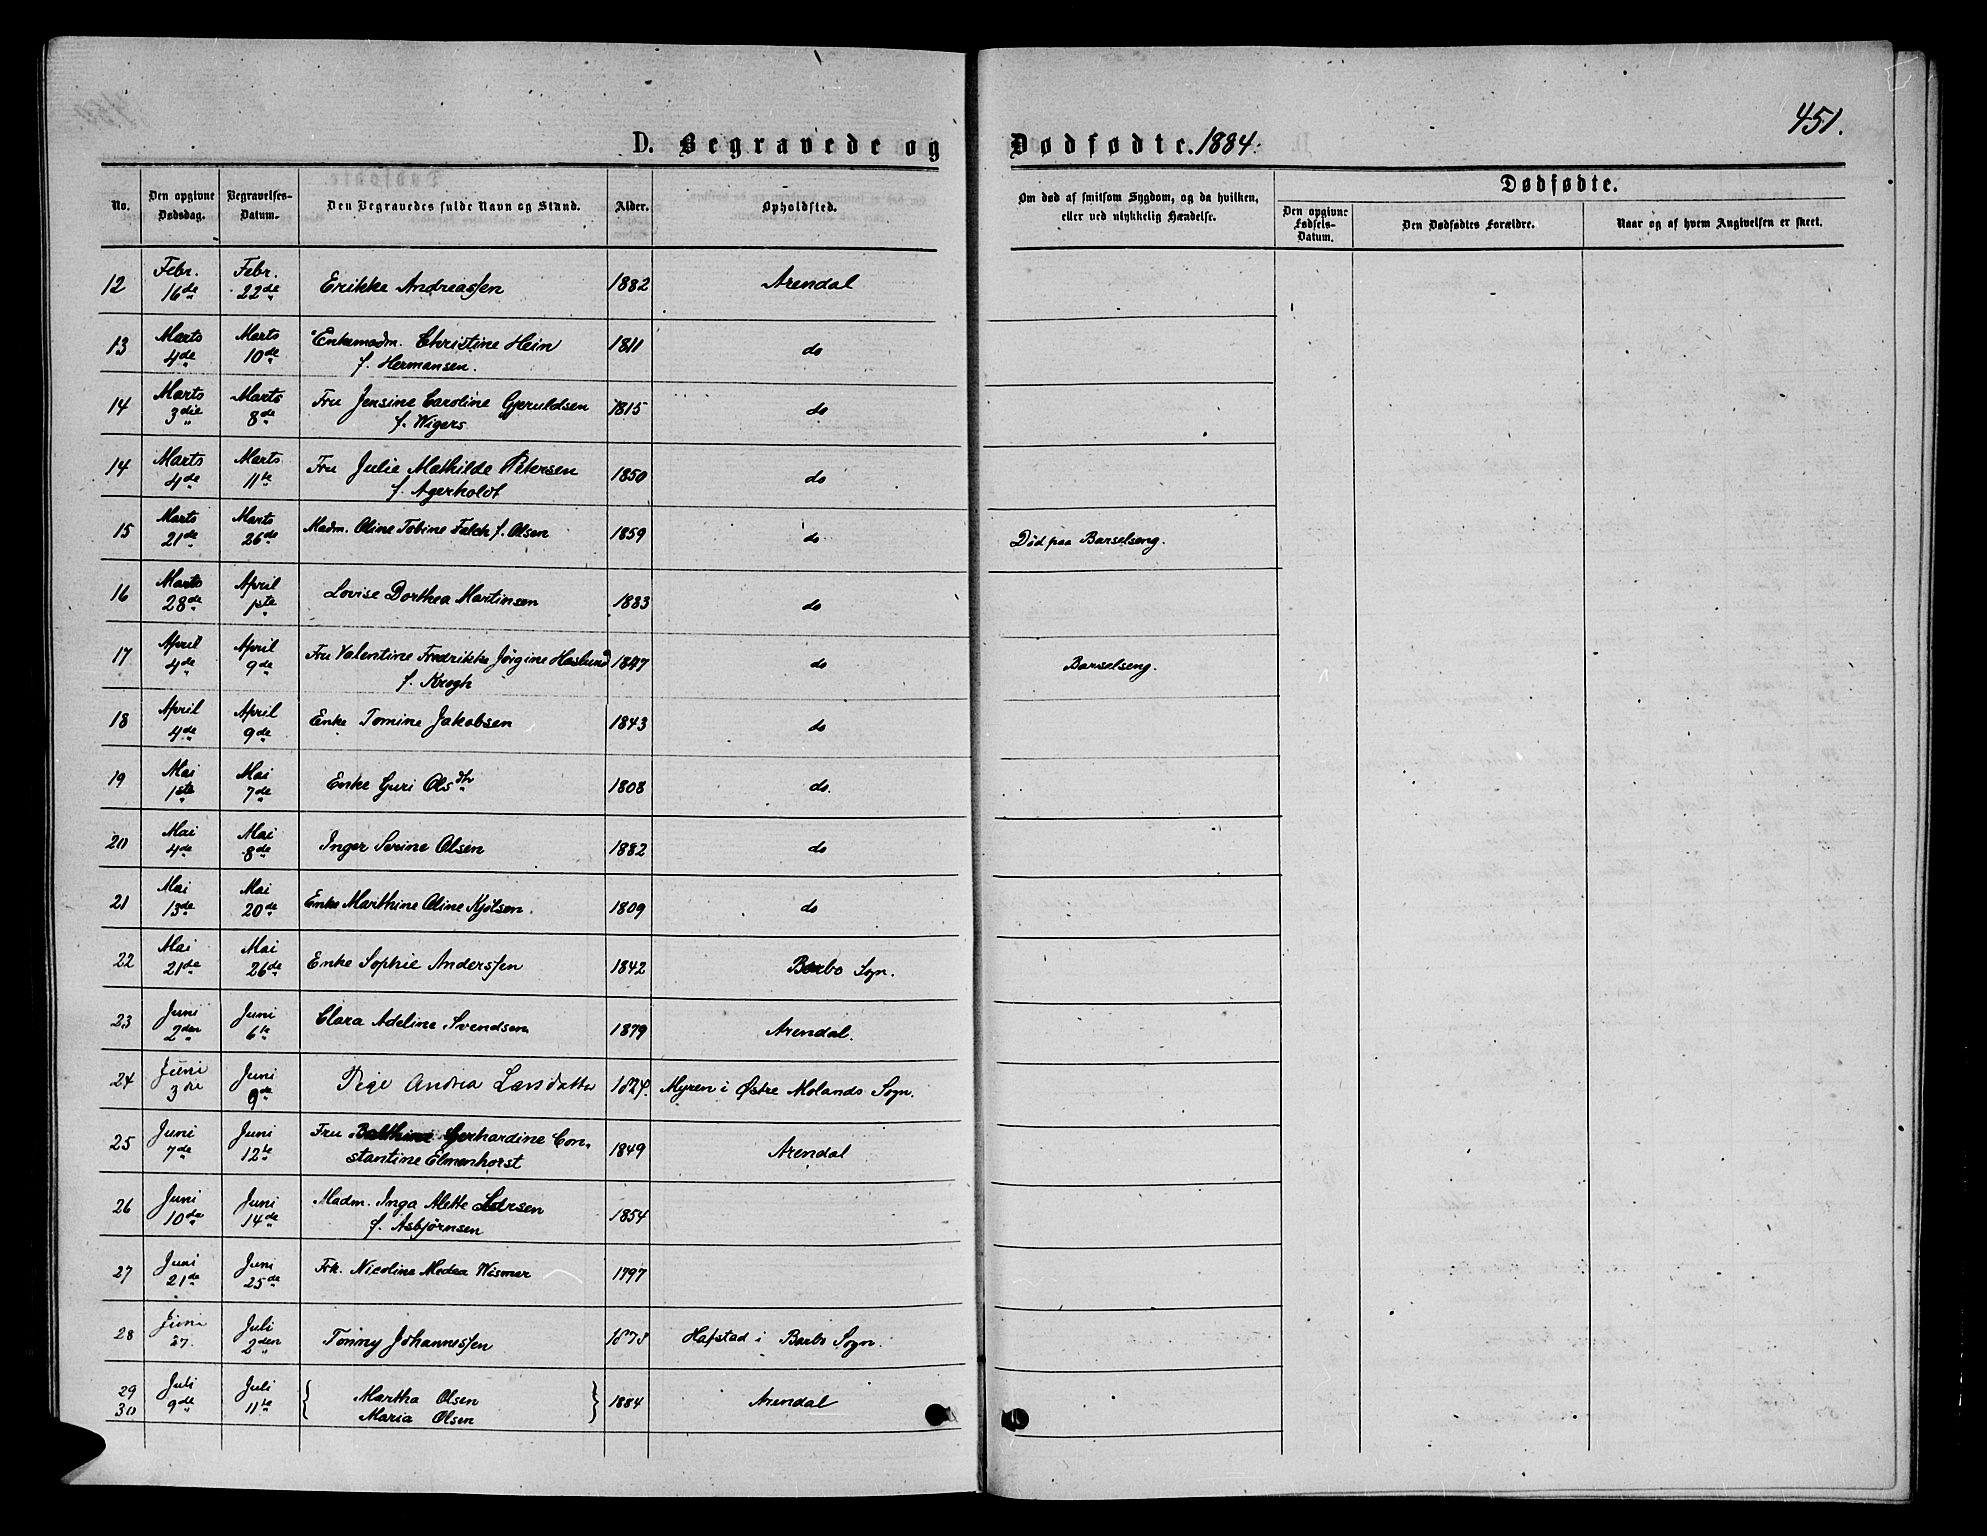 451.
D. Begravede og Dødfødte. 1884.
No. Den opgivne Dødsdag. Begravelses-Datum. Den Begravedes fulde Navn og Stand. Alder. Opholdsted. Om død af smitsom Sygdom, og da hvilken, eller ved ulykkelig Hændelse. Dødfødte. Den opgivne Fødsels-Datum. Den Dødfødtes Forældre. Naar og af hvem Angivelsen er skeet.
12 Febr. 16de Febr. 22de Erikke Andreassen 1882 Arendal
13 Marts 4de Marts 10de Enkemadm. Christine Hein
f. Hermansen. 1811 do
14 Marts 3die Marts 8de Fru Jensine Caroline Gjeruldsen
f. Wigers 1815 do
14 Marts 4de Marts 11te Fru Julie Mathilde Petersen
f. Agerholdt 1850 do
15 Marts 21de Marts 26de Madm. Oline Tobine Falch f. Olsen 1859 do Død paa Barselseng.
16 Marts 28de April 1ste Lovise Dorthea Martinsen 1883 do
17 April 4de April 9de Fru Valentine Fredrikke Jørgine Haslund
f. Krogh 1847 do Barselseng.
18 April 4de April 9de Enke Tomine Jakobsen 1843 do
19 Mai 1ste Mai 7de Enke Guri Olsdtr 1808 do.
20 Mai 4de Mai 8de Inger Serine Olsen 1882 do
21 Mai 13de Mai 20de Enke Marthine Oline Kjølsen. 1809 do
22 Mai 21de Mai 26de Enke Sophie Anderssen 1842 Barbo Sogn.
23 Juni 2den Juni 6te Clara Adeline Svendsen 1879 Arendal.
24 Juni 3die Juni 9de Pige Andrea Larsdatter 1824. Myren i Østre Molands Sogn.
25 Juni 7de Juni 12te Fru Gerhardine Con-
stantine Elmenhorst 1849 Arendal
26 Juni 10de Juni 14de Madm. Inga Alette
f. Asbjørnsen 1854
27 Juni 21de Juni 25de Frk. Nicoline Medea Wismer 1797
28 Juni 27. Juli 2den Tønny Johannessen 1878 Hafstad i Barbo Sogn.
29 Juli 9de Juli 11te { Martha Olsen } 1884 Arendal
30 Maria Olsen